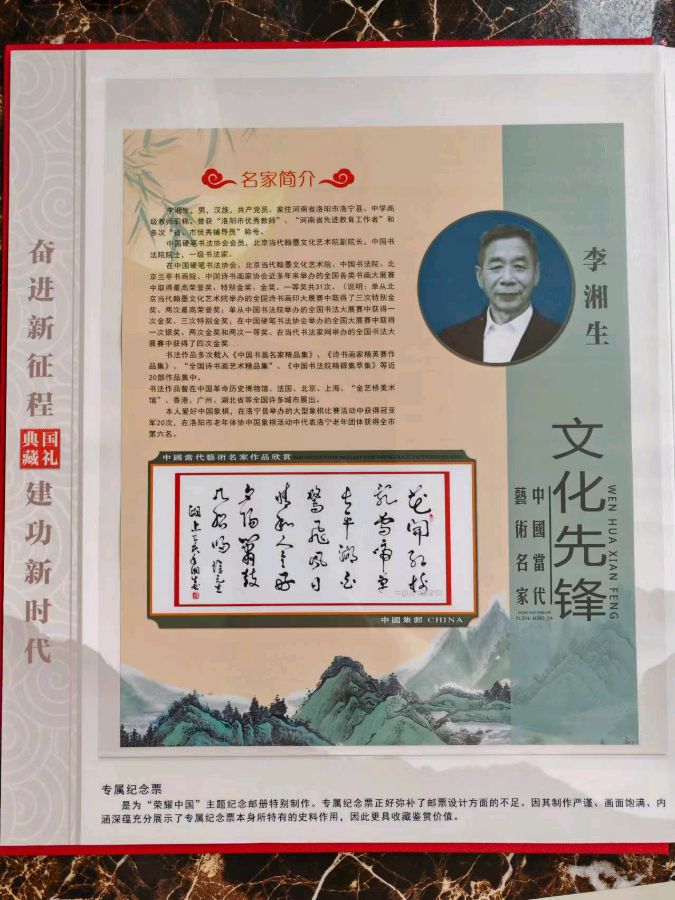 奋进新征程
国礼
典藏
建功新时代
名家简介
李湘生，男，汉族，共产党员。家住河南省洛阳市洛宁县。中学高
级教师职称。曾获“洛阳市优秀教师”、“河南省先进教育工作者”和
多次“省、市优秀辅导员”称号。
中国硬笔书法协会会员，北京当代翰墨文化艺术院副院长、中国书
法院院士，一级书法家。
在中国硬笔书法协会、北京当代翰墨文化艺术院、中国书法院、北
京兰亭书画院、中国诗书画家协会近多年来举办的全国各类书画大展赛
中取得最高荣誉奖、特别金奖、金奖、一等奖共31次、（说明：单从北
京当代翰墨文化艺术院举办的全国诗书画印大展赛中取得了三次特别金
奖、两次最高荣誉奖；单从中国书法院举办的全国书法大展赛中获得一
次金奖、三次特别金奖；在中国硬笔书法协会举办的全国大展赛中取得
一次银奖、两次金奖和两次一等奖。在当代书法家网举办的全国书法大
展赛中获得了四次金奖。
书法作品多次载入《中国书画名家精品集》、《诗书画家精英赛作
品集》、“全国诗书画艺术精品集”、《中国书法院精辟集萃集》等近
20部作品集中。
书法作品曾在中国革命历史博物馆、法国、北京、上海、“金艺桥美术
馆”、香港、广州、湖北省等全国许多城市展出。
本人爱好中国象棋，在洛宁县举办的大型象棋比赛活动中获得冠亚
军20次，在洛阳市老年体协中国象棋活动中代表洛宁老年团体获得全市
第六名。
李湘生
文化先锋
WEN HUA XIAN FENG
中國當代
藝術名家
中國當代藝術名家作品欣賞
花開紅樹
亂鶯啼草
長平湖白
鷺飛風日
晴和人意
好
夕陽簫鼓
幾船歸
中國集郵 CHINA
专属纪念票
是为“荣耀中国”主题纪念邮册特别制作。专属纪念票正好弥补了邮票设计方面的不足。因其制作严谨、画面饱满、内
涵深蕴充分展示了专属纪念票本身所特有的史料作用，因此更具收藏鉴赏价值。